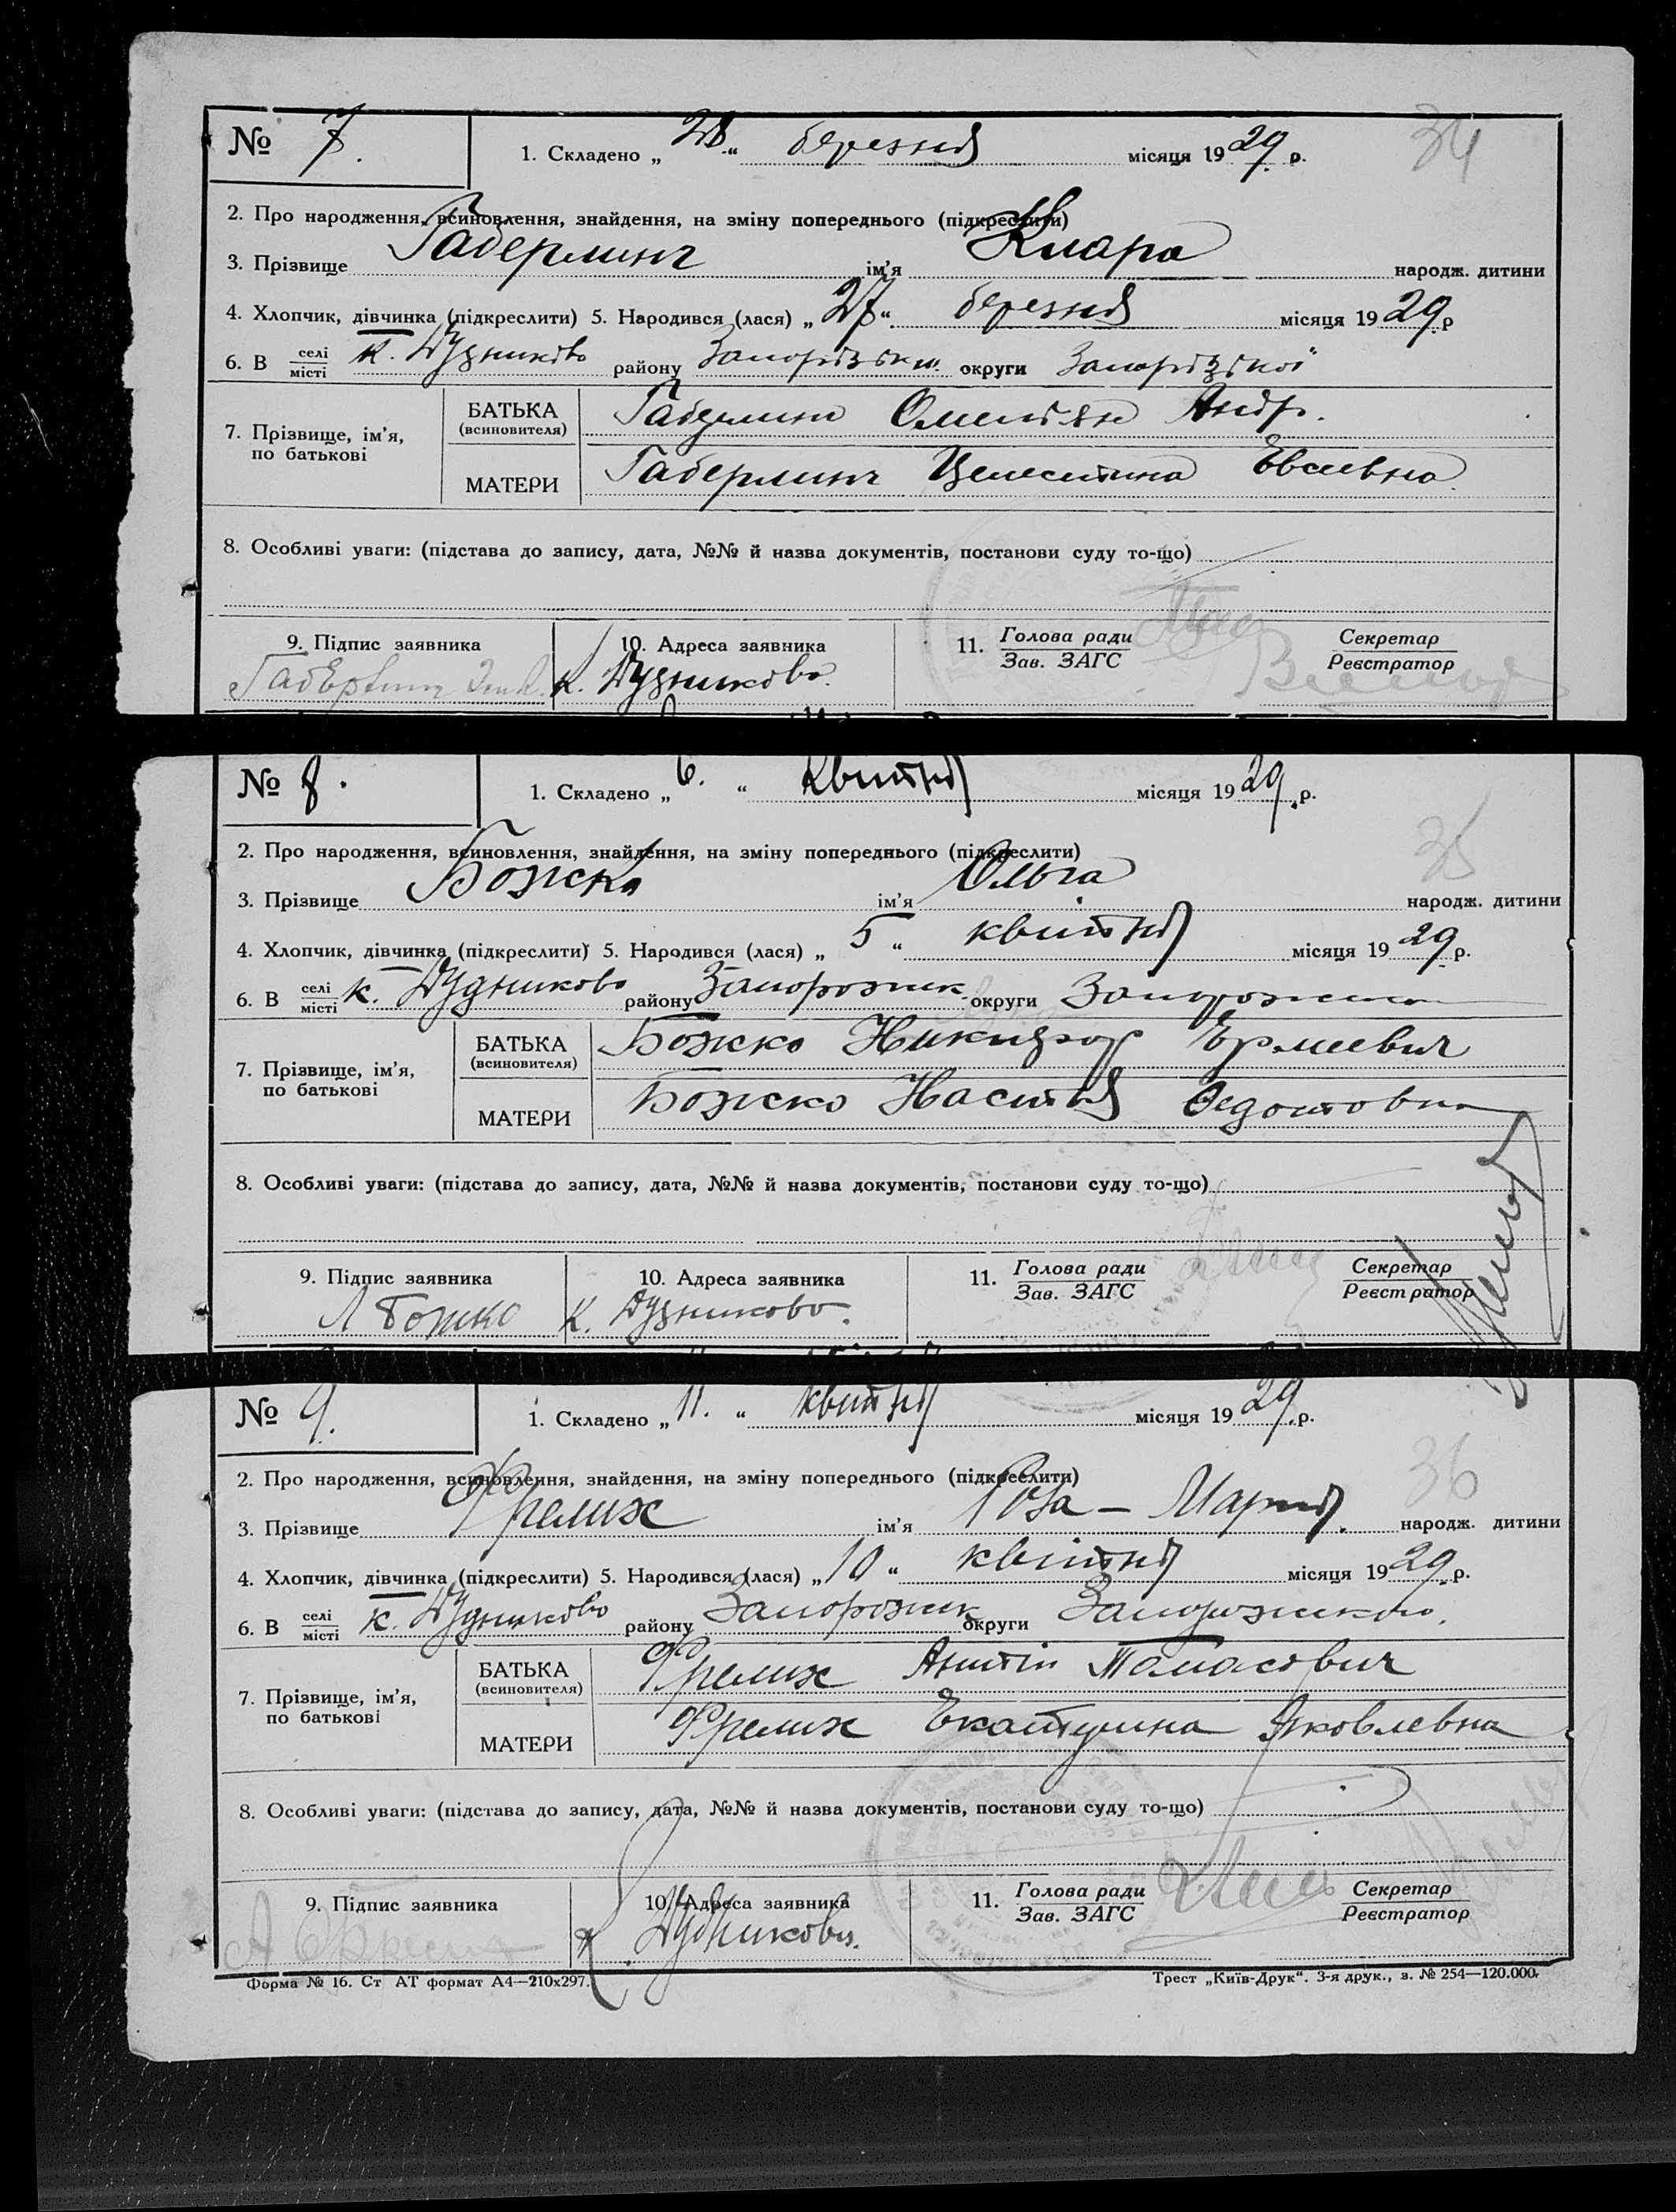 № 7. 1. Складено „28“ березня місяця 1929 р. 34
2. Про народження, всиновлення, знайдення, на зміну попереднього (підкреслити)
3. Прізвище Габерлинг ім'я Клара народж. дитини
4. Хлопчик, дівчинка (підкреслити) 5. Народився (лася) „27“ березня місяця 1929 р
6. В селі місті к. Дудниково району Запорізьк. округи Запорізької
7. Прізвище, ім'я, по батькові
БАТЬКА (всиновителя) Габерлинг Омельян Андр.
МАТЕРИ Габерлинг Целестина Евсевна
8. Особливі уваги: (підстава до запису, дата, №№ й назва документів, постанови суду то-що)
9. Підпис заявника 10. Адреса заявника 11. Голова ради Зав. ЗАГС Секретар Реєстратор
к. Дудниково.
№ 8. 1. Складено „6.“ квітня місяця 1929 р. 35
2. Про народження, всиновлення, знайдення, на зміну попереднього (підкреслити)
3. Прізвище Божко ім'я Ольга народж. дитини
4. Хлопчик, дівчинка (підкреслити) 5. Народився (лася) „5“ квітня місяця 1929 р.
6. В селі місті к. Дудниково району Запорожск. округи
7. Прізвище, ім'я, по батькові
БАТЬКА (всиновителя) Божко Никифор Ермеевич
МАТЕРИ Божко Настья Федотовна
8. Особливі уваги: (підстава до запису, дата, №№ й назва документів, постанови суду то-що)
9. Підпис заявника 10. Адреса заявника 11. Голова ради Зав. ЗАГС Секретар Реєстратор
Божко к. Дудниково.
№ 9. 1. Складено „11.“ квітня місяця 1929 р. 36
2. Про народження, всиновлення, знайдення, на зміну попереднього (підкреслити)
3. Прізвище Фрелих ім'я Роза – Мария. народж. дитини
4. Хлопчик, дівчинка (підкреслити) 5. Народився (лася) „10“ квітня місяця 1929 р.
6. В селі місті к. Дудниково району Запорожск округи
7. Прізвище, ім'я, по батькові
БАТЬКА (всиновителя) Фрелих Антін Томасович
МАТЕРИ Фрелих Екатерина Яковлевна
8. Особливі уваги: (підстава до запису, дата, №№ й назва документів, постанови суду то-що)
9. Підпис заявника 10. Адреса заявника 11. Голова ради Зав. ЗАГС Секретар Реєстратор
к. Дудниково.
Форма № 16. Ст АТ формат А4—210х297. Трест „Київ-Друк“. 3-я друк., з. № 254—120.000.